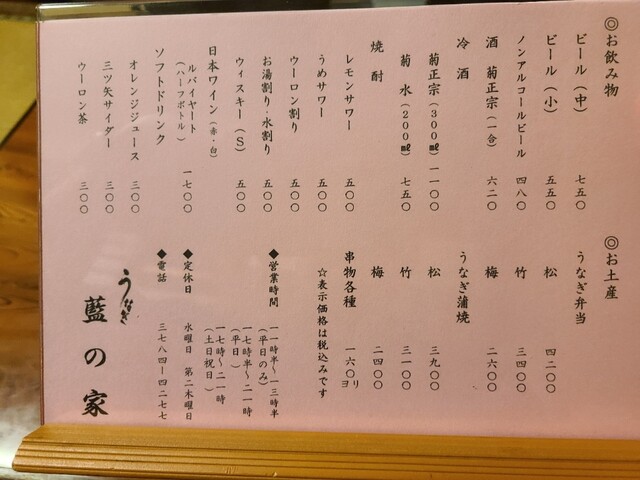 ◎お飲み物
ビール（中） 七五〇
ビール（小） 五五〇
ノンアルコールビール 四八〇
酒 菊正宗（一合） 六二〇
冷酒
菊正宗（300㎖） 一一〇〇
菊水（200㎖） 七五〇
焼酎
レモンサワー 五〇〇
うめサワー 五〇〇
ウーロン割り 五〇〇
お湯割り・水割り 五〇〇
ウィスキー（S） 五〇〇
日本ワイン（赤・白）
ルバイヤート
（ハーフボトル） 一七〇〇
ソフトドリンク
オレンジジュース 三〇〇
三ツ矢サイダー 三〇〇
ウーロン茶 三〇〇
◎お土産
うなぎ弁当
松 四二〇〇
竹 三四〇〇
梅 二六〇〇
うなぎ蒲焼
松 三九〇〇
竹 三一〇〇
梅 二四〇〇
串物各種 一六〇より
☆表示価格は税込みです
◆営業時間 一一時半〜一三時半
（平日のみ）
一七時半〜二一時
（平日）
一七時〜二一時
（土日祝日）
◆定休日 水曜日 第二木曜日
◆電話 三七八四ー四二七七
うなぎ 藍の家